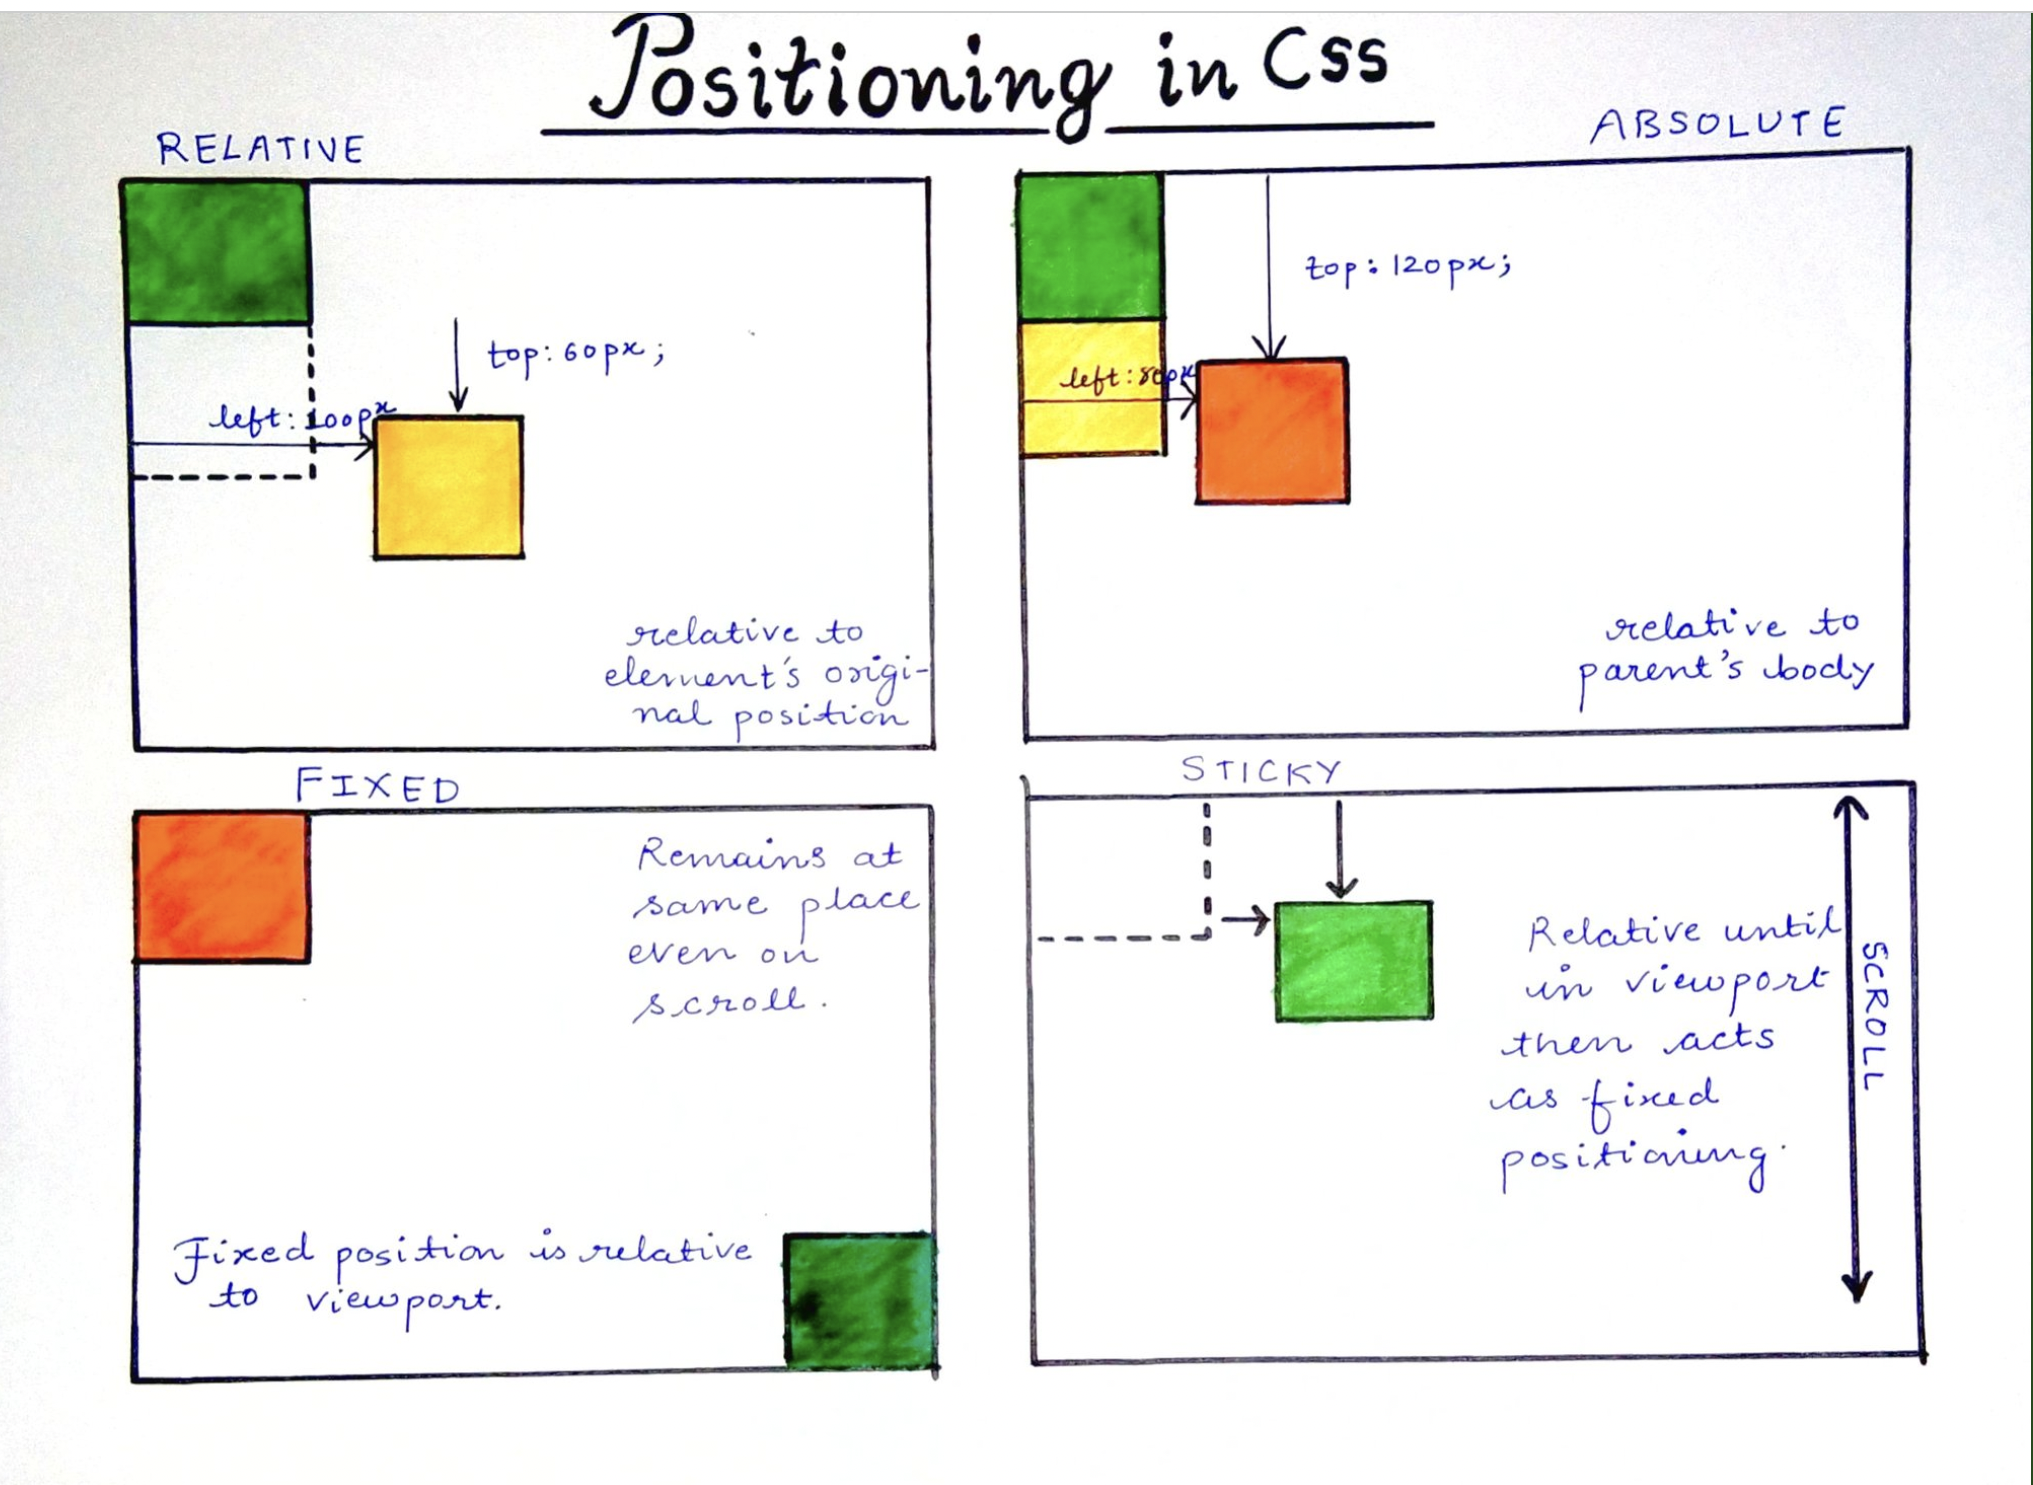 Positioning in CSS
RELATIVE
top: 60px;
left: 100px
relative to
element's origi-
nal position
ABSOLUTE
top: 120px;
left: 80px
relative to
parent's body
FIXED
Remains at
same place
even on
scroll.
Fixed position is relative
to viewport.
STICKY
Relative until
in viewport
then acts
as fixed
positioning.
SCROLL